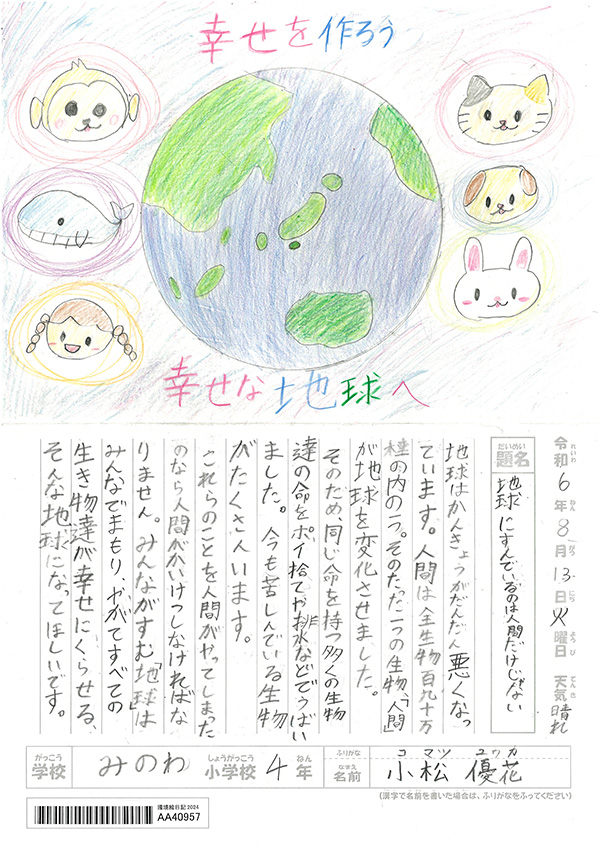 幸せを作ろう
幸せな地球へ
令和6年8月13日火曜日 天気晴れ
れいわ ねん がつ にち ようび てんき
だいめい
題名
地球にすんでいるのは人間だけじゃない
地球はかんきょうがだんだん悪くなっ
ています。人間は全生物百九十万
種の内の一つ。そのたった一つの生物、「人間」
が地球を変化させました。
そのため、同じ命を持つ多くの生物
達の命をポイ捨てや排水などでうばい
ました。今も苦しんでいる生物
がたくさんいます。
これらのことを人間がやってしまった
のなら人間がかいけつしなければな
りません。みんながすむ「地球」は
みんなでまもり、やがてすべての
生き物達が幸せにくらせる、
そんな地球になってほしいです。
がっこう しょうがっこう ねん ふりがな コマツ ユウカ
学校 みのわ 小学校 4年 なまえ 名前 小松 優花
(漢字で名前を書いた場合は、ふりがなをふってください)
環境絵日記2024
AA40957